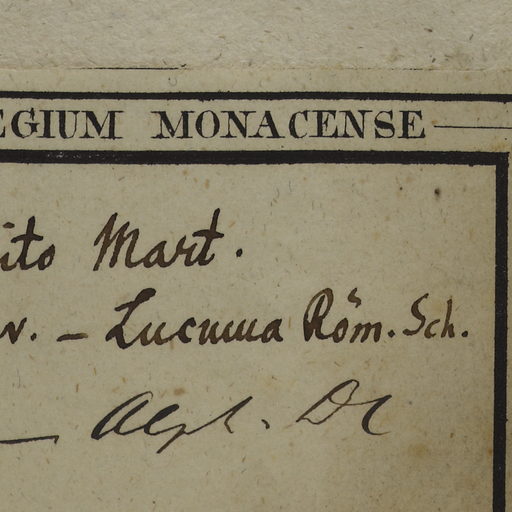 EGIUM MONACENSE
ito Mart.
v. – Lucuma Röm. Sch.
— Alph. DC